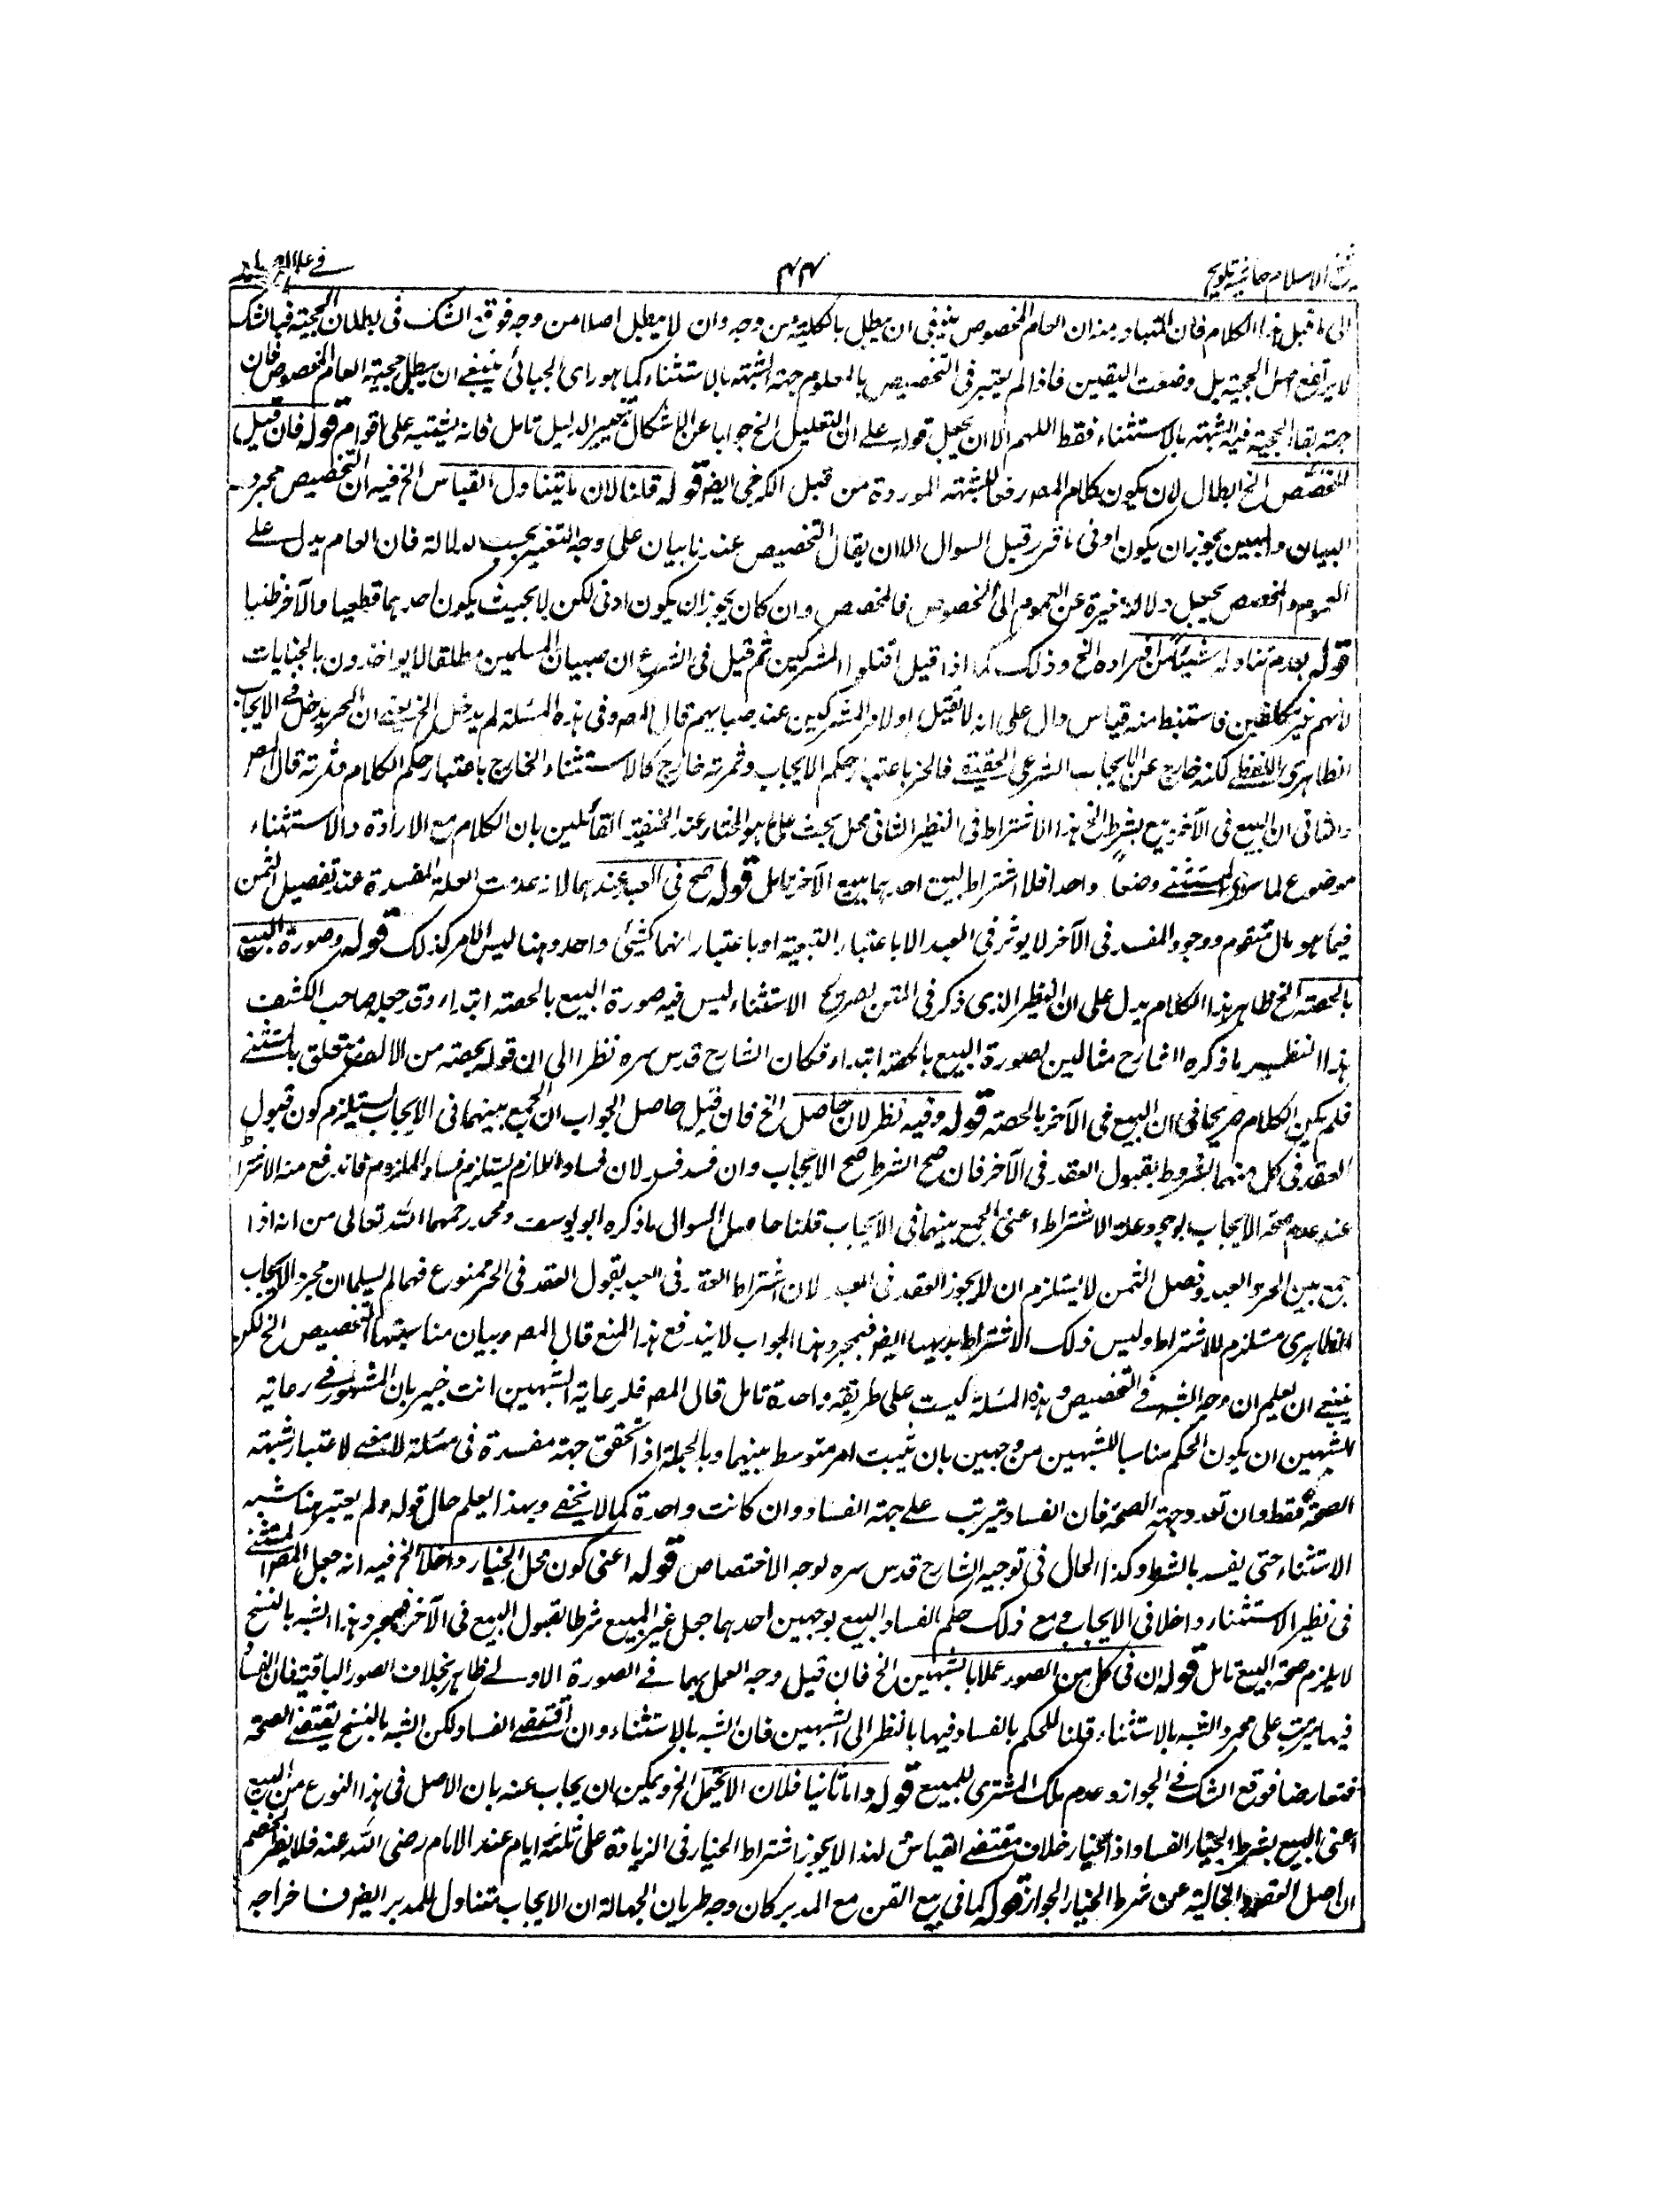 شيخ الاسلام حاشية تلويح
۴۴
الى ما قبل هذا الكلام فان المتبادر منه ان العام المخصوص ينبغى ان يبطل بالكلية من وجه وان لا يبطل اصلا من وجه فوقع الشك فى بطلان الحجية فبالشك
لا يرتفع اصل الحجية بل وصف اليقين فاذا لم يعتبر فى التخصيص بالمعلوم جهة الشبهة بالاستثناء كما هو راى الجبائى ينبغى ان يبطل حجية العام المخصوص فان
جهة بقاء الحجية فيه الشبهة بالاستثناء فقط اللهم الا ان يجعل قوله على ان التعليل الخ جوابا عن الاشكال بتغيير الدليل تامل فانه يشتبه على اقوام قوله فان قيل
المخصص الخ ابطال لان يكون كلام المصر رفعا للشبهة الموردة من قبل الكرخى ايضا قوله قلنا لان ما يتناول القياس الخ فيه ان التخصيص مجرد
البيان والمبين يجوز ان يكون ادنى ما قرر قبيل السوال الا ان يقال التخصيص عندنا بيان على وجه التغيير بحسب الدلالة فان العام يدل على
العموم والمخصص يجعل دلالة مغيرة عن العموم الى الخصوص فالمخصص وان كان يجوز ان يكون ادنى لكن لا بحيث يكون احدهما قطعيا والآخر ظنيا
قوله بعدم تناوله شيئا من افراده الخ وذلك كما اذا قيل اقتلوا المشركين ثم قيل فى الشرع ان صبيان المسلمين مطلقا لا يواخذون بالجنايات
لانهم غير مكلفين فاستنبط منه قياس دال على انه لا تقتل اولاد المشركين عند صباهم قال المصر وفى هذه المسئلة لم يدخل الخ يعنى ان الحر يدخل فى الايجاب
الظاهرى اللفظى لكنه خارج عن الايجاب الشرعى الحقيقى فالحر باعتبار حكم الايجاب وثمرته خارج كالاستثناء الخارج باعتبار حكم الكلام وثمرته قال المصر
والثانى ان البيع فى الآخر بيع بشرط الخ هذا الاشتراط فى النظير الثانى محل بحث على ما هو المختار عند الحنفية القائلين بان الكلام مع الارادة والاستثناء
موضوع لما سوى المستثنى وضعا واحدا فلا اشتراط لبيع احدهما ببيع الآخر تامل قوله صح فى العبد عندهما لانه عدمت العلة المفسدة عند تفصيل الثمن
فيما هو مال متقوم ووجود المفسد فى الآخر لا يوثر فى العبد الا باعتبار التبعية او باعتبار انهما كشئ واحد وهنا ليس الامر كذلك قوله وصورة البيع
بالحصة الخ ظاهر هذا الكلام يدل على ان النظير الذى ذكر فى المتن بصريح الاستثناء ليس فيه صورة البيع بالحصة ابتداء وقد جعل صاحب الكشف
هذا النظير ما ذكره الشارح مثالين لصورة البيع بالحصة ابتداء فكان الشارح قدس سره نظر الى ان قوله بحصته من الالف متعلق بالمستثنى
فلم يكن الكلام صريحا فى ان البيع فى الآخر بالحصة قوله وفيه نظر لان حاصل الخ فان قيل حاصل الجواب ان الجمع بينهما فى الايجاب يستلزم كون قبول
العقد فى كل منهما مشروطا بقبول العقد فى الآخر فان صح الشرط صح الايجاب وان فسد فسد لان فساد اللازم يستلزم فساد الملزوم فاندفع منه الاشتراط
عند عدم صحة الايجاب لوجود علة الاشتراط اعنى الجمع بينهما فى الايجاب قلنا حاصل السوال ما ذكره ابو يوسف ومحمد رحمهما الله تعالى من انه اذا
جمع بين الحر والعبد وفصل الثمن لا يستلزم ان لا يجوز العقد فى العبد لان اشتراط العقد فى العبد بقبول العقد فى الحر ممنوع فهما لم يسلما ان مجرد الايجاب
الظاهرى مستلزم للاشتراط وليس ذلك الاشتراط بديهيا ايضا فبمجرد هذا الجواب لا يندفع هذا المنع قال المصر وبيان مناسبتها التخصيص الخ لكن
ينبغى ان يعلم ان وجه الشبه فى التخصيص وهذه المسئلة ليست على طريقة واحدة تامل قال المصر فلرعاية الشبهين انت خبير بان المشهور فى رعاية
الشبهين ان يكون الحكم مناسبا للشبهين من وجهين بان يثبت امر متوسط بينهما وبالجملة اذا تحقق جهة مفسدة فى مسئلة لا معنى لاعتبار شبهة
الصحة فقط وان تعدد جهة الصحة فان الفساد يترتب على جهة الفساد وان كانت واحدة كما لا يخفى وبهذا يعلم حال قوله ولم يعتبر هنا شبه
الاستثناء حتى يفسد بالشرط وكذا الحال فى توجيه الشارح قدس سره لوجه الاختصاص قوله اعنى كون محل الخيار داخلا الخ فيه انه جعل المصر المستثنى
فى نظير الاستثناء داخلا فى الايجاب ومع ذلك حكم بفساد البيع بوجهين احدهما جعل غير المبيع شرطا لقبول البيع فى الآخر فبمجرد هذا الشبه بالنسخ
لا يلزم صحة البيع تامل قوله ان فى كل من الصور عملا بالشبهين الخ فان قيل وجه العمل بهما فى الصورة الاولى ظاهر بخلاف الصور الباقية فان الفساد
فيها يترتب على مجرد الشبه بالاستثناء قلنا للحكم بالفساد فيها بالنظر الى الشبهين فان الشبه بالاستثناء وان اقتضى الفساد لكن الشبه بالنسخ يقتضى الصحة
فتعارضا فوقع الشك فى الجواز وعدم ملك المشترى للمبيع قوله واما ثانيا فلان الاصل الخ ويمكن ان يجاب عنه بان الاصل فى هذا النوع من البيع
اعنى البيع بشرط الخيار الفساد اذ الخيار خلاف مقتضى القياس لهذا لا يجوز اشتراط الخيار فى الزيادة على ثلثة ايام عند الامام رضى الله عنه فلا يضر
ان اصل العقود الخالية عن شرط الخيار الجواز قوله كما فى بيع القن مع المدبر كان وجه طريان الجهالة ان الايجاب تناول للمدبر ايضا اخراجه